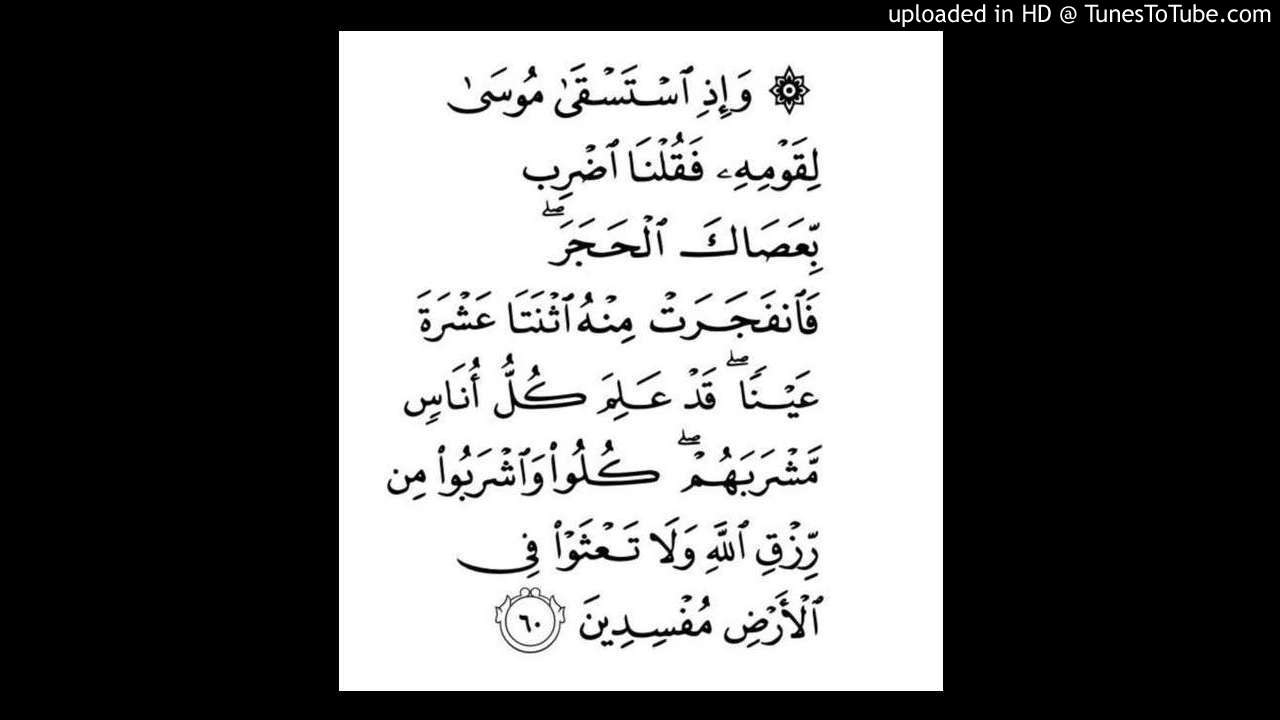 uploaded in HD @ TunesToTube.com
۞ وَإِذِ ٱسْتَسْقَىٰ مُوسَىٰ
لِقَوْمِهِۦ فَقُلْنَا ٱضْرِب
بِّعَصَاكَ ٱلْحَجَرَۖ
فَٱنفَجَرَتْ مِنْهُ ٱثْنَتَا عَشْرَةَ
عَيْنًاۖ قَدْ عَلِمَ كُلُّ أُنَاسٍ
مَّشْرَبَهُمْۖ كُلُوا۟ وَٱشْرَبُوا۟ مِن
رِّزْقِ ٱللَّهِ وَلَا تَعْثَوْا۟ فِى
ٱلْأَرْضِ مُفْسِدِينَ ٦٠